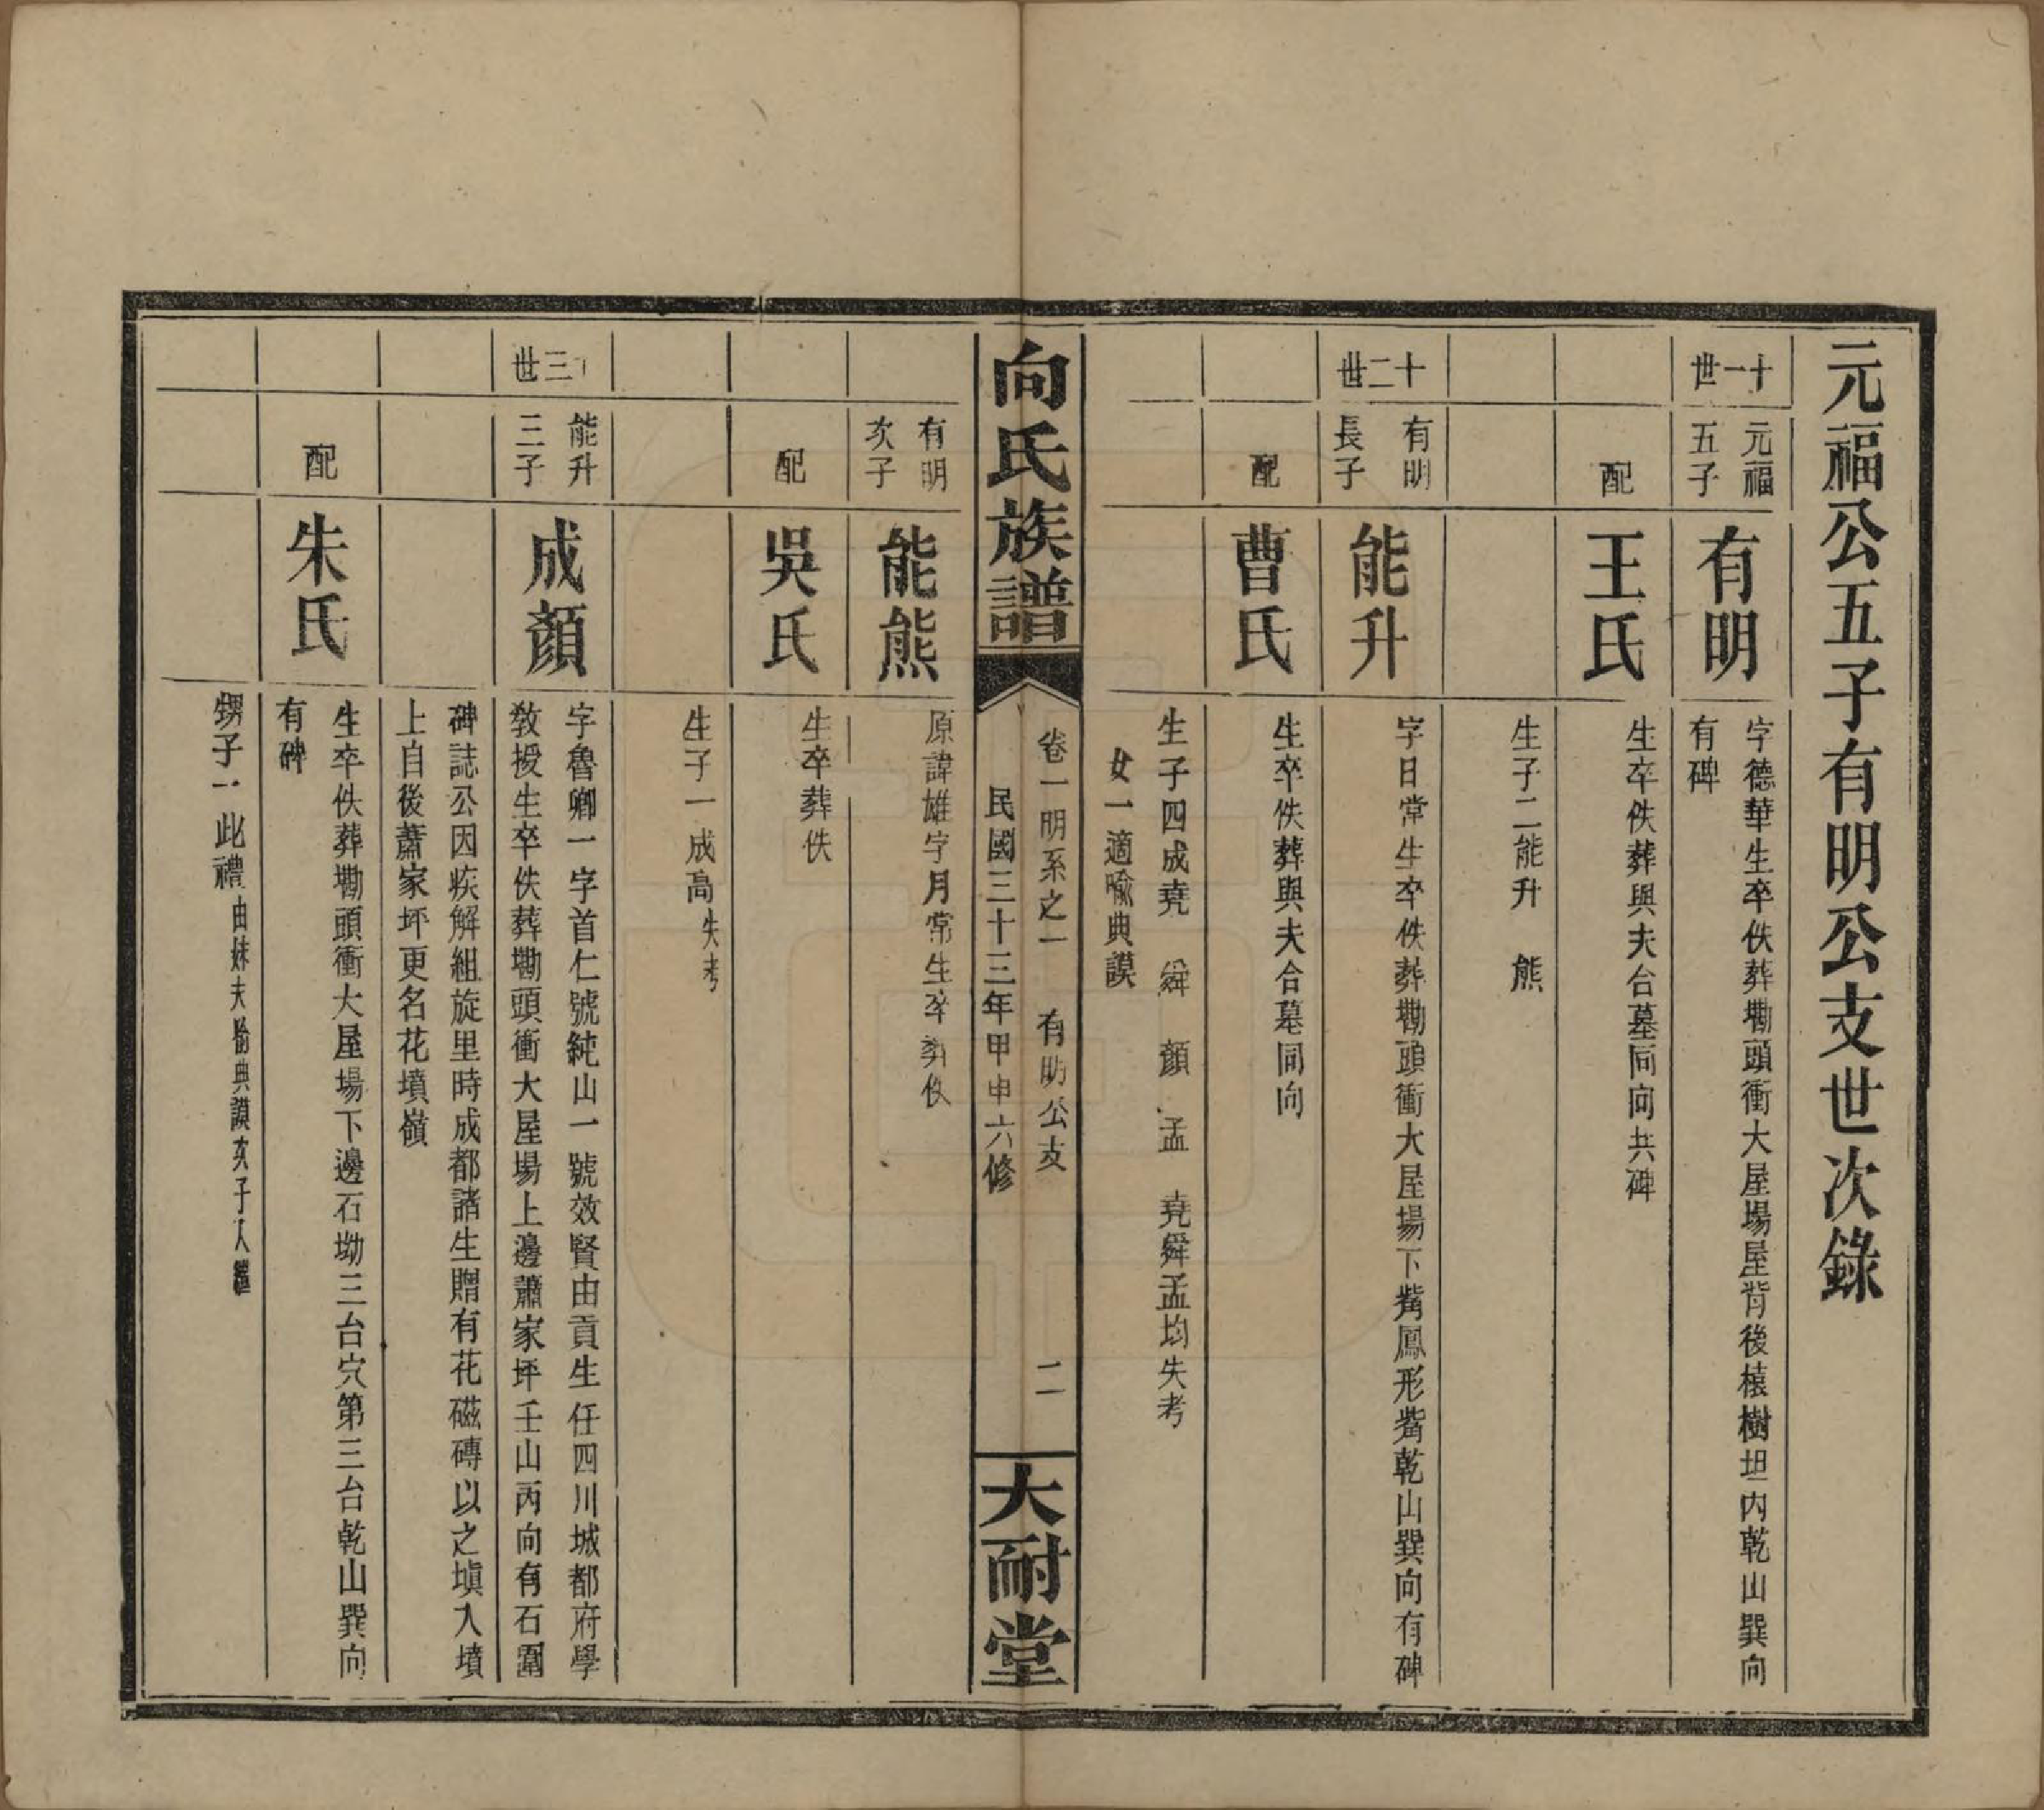 元福公五子有明公支世次錄
十一世
元福
五子
有明
字德華生卒佚葬墈頭衝大屋場屋背後榬樹坦內乾山巽向
有碑
配
王氏
生卒佚葬與夫合墓同向共碑
生子二能升　熊
十二世
有明
長子
能升
字日常生卒佚葬墈頭衝大屋場下觜鳳形觜乾山巽向有碑
配
曹氏
生卒佚葬與夫合墓同向
生子四成堯　舜　顏　孟　堯舜孟均失考
女一適喩典謨
向氏族譜
卷一明系之一　有明公支　二
民國三十三年甲申六修
大耐堂
有明
次子
能熊
原諱雄字月常生卒葬佚
配
吳氏
生卒葬佚
生子一成高失考
十三世
能升
三子
成顏
字魯卿一字首仁號純山一號效賢由貢生任四川城都府學
敎授生卒佚葬墈頭衝大屋場上邊蕭家坪壬山丙向有石圍
碑誌公因疾解組旋里時成都諸生贈有花磁磚以之塡入墳
上自後蕭家坪更名花墳嶺
配
朱氏
生卒佚葬墈頭衝大屋場下邊石坳三台穴第三台乾山巽向
有碑
甥子一此禮由妹夫喩典謨次子入繼